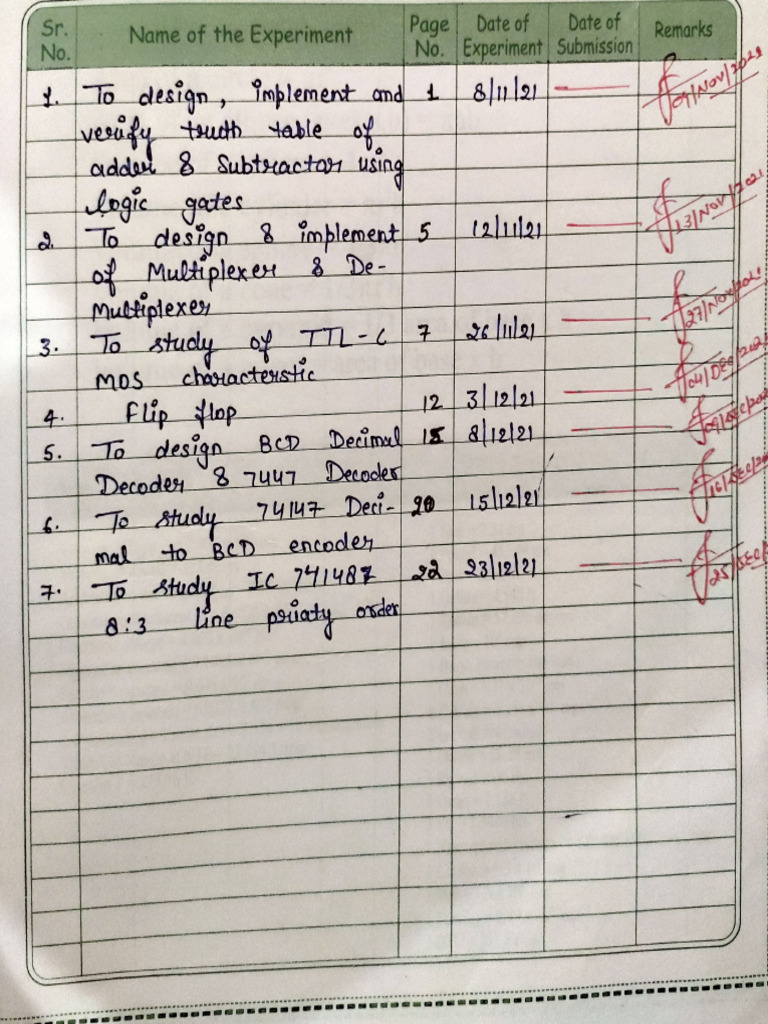 Sr. No. Name of the Experiment Page No. Date of Experiment Date of Submission Remarks
1. To design, implement and 1 8/11/21 09/Nov/2021
verify truth table of
adder & Subtractor using
logic gates
2. To design & implement 5 12/11/21 13/Nov/2021
of Multiplexer & De-
Multiplexer
3. To study of TTL-C 7 26/11/21 27/Nov/2021
MOS characterstic
4. Flip flop 12 3/12/21 04/DEC/202
5. To design BCD Decimal 15 8/12/21 09/DEC/202
Decoder & 7447 Decoder
6. To study 74147 Deci- 20 15/12/21 16/DEC/2
mal to BCD encoder
7. To study IC 741487 22 23/12/21 25/DEC/
8:3 line priaty order